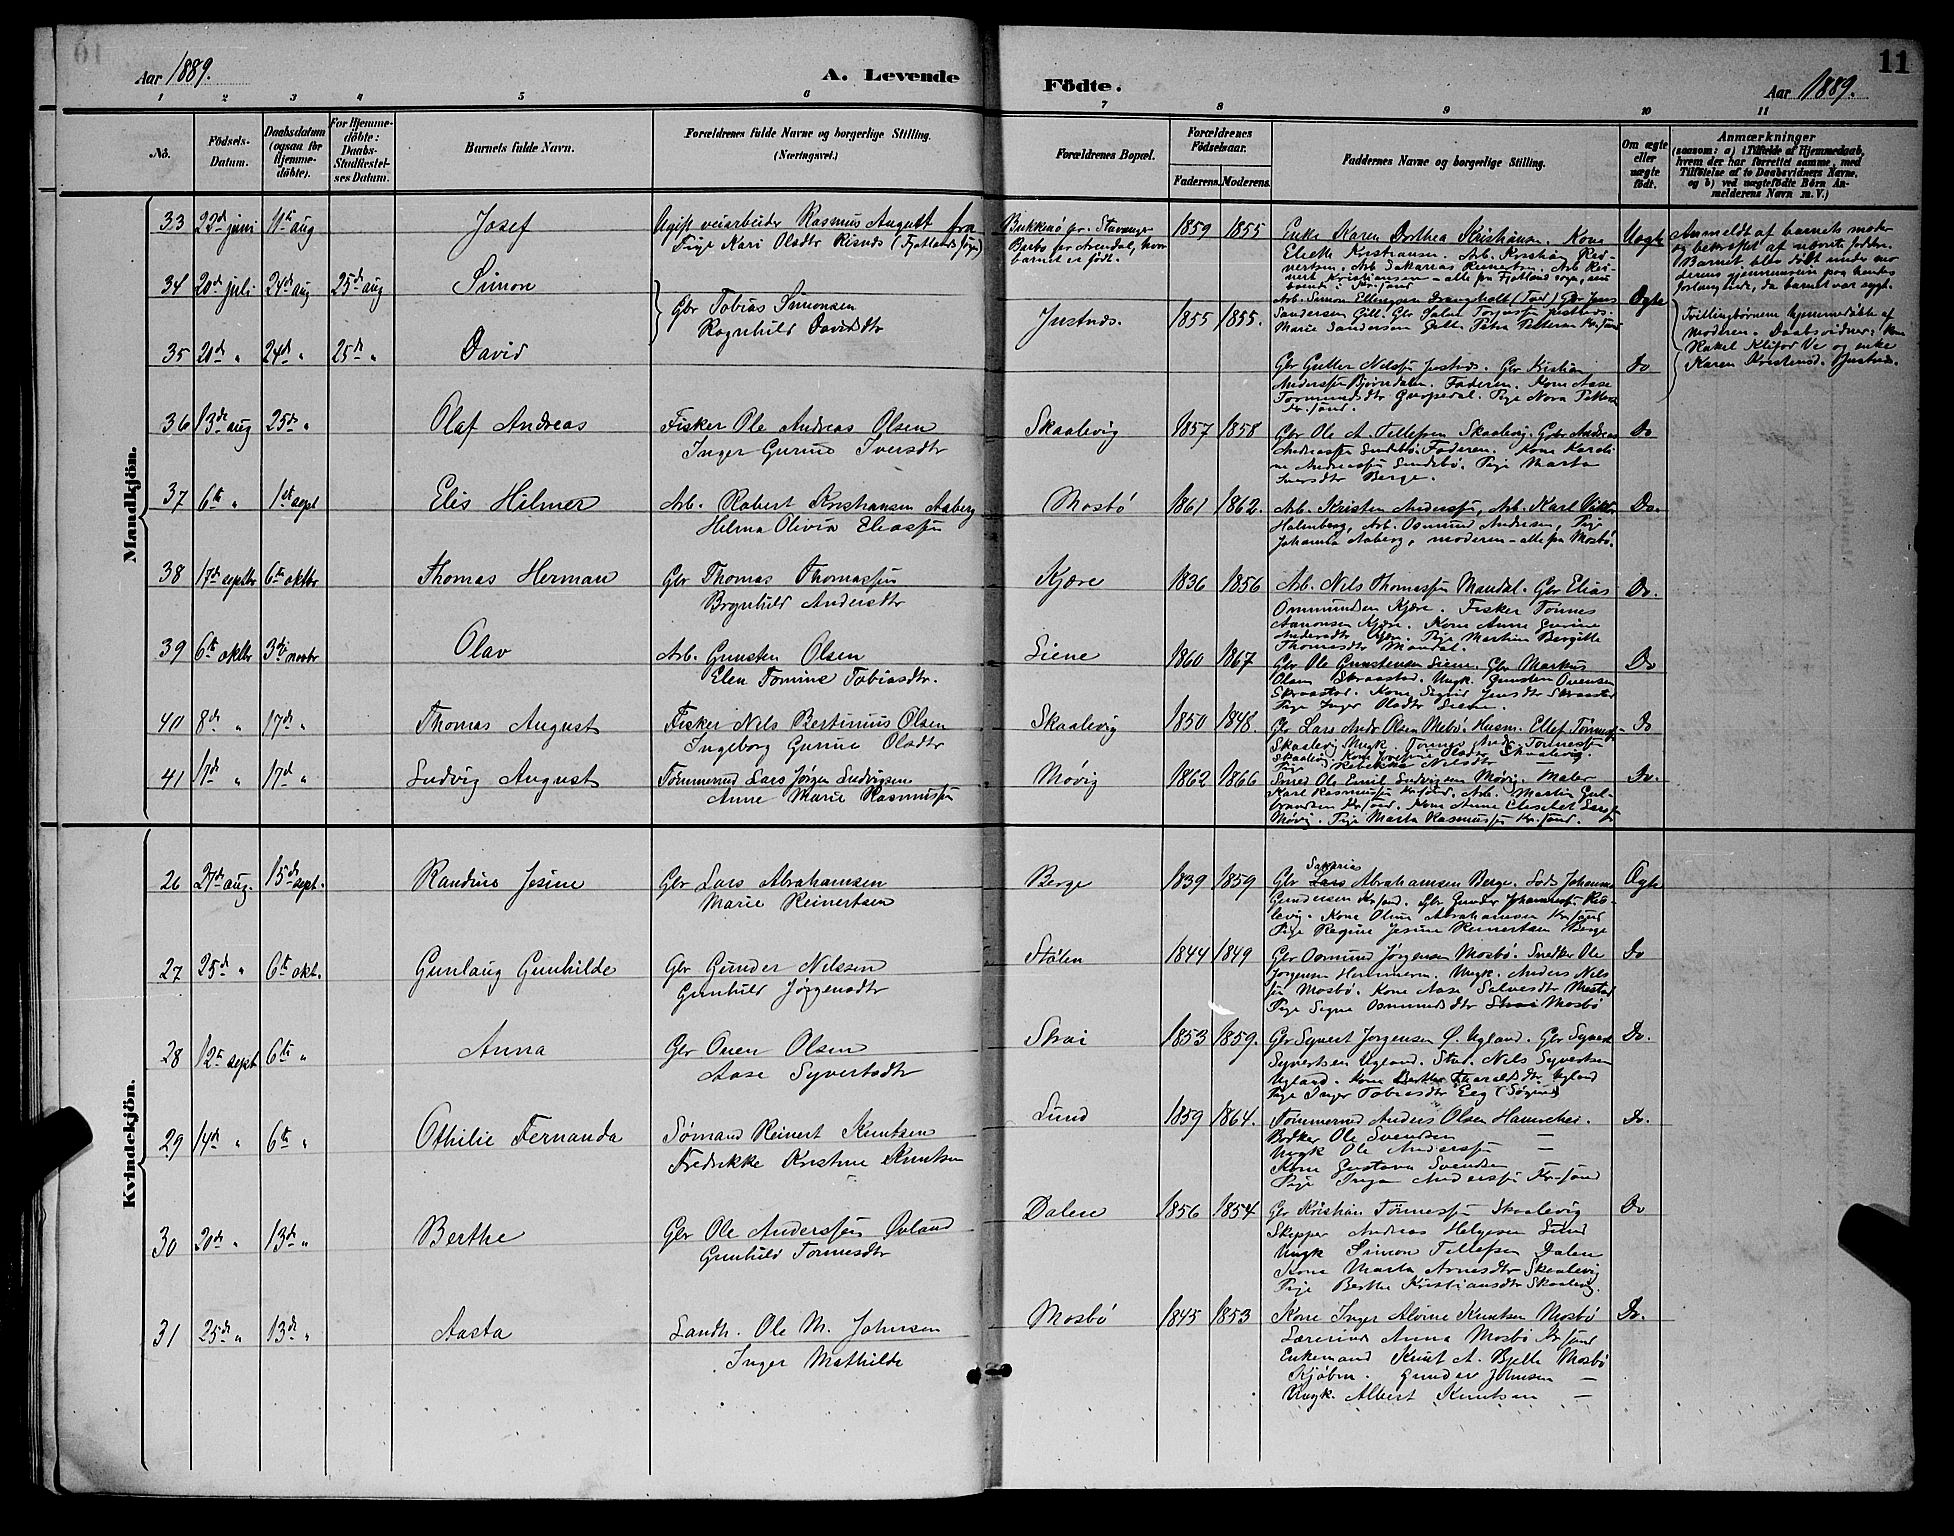 Aar 1889.
A. Levende
Födte.
Aar 1889.
11
1 2 3 4 5 6 7 8 9 10 11
No.
Födsels-
Datum.
Daabsdatum
(ogsaa for
Hjemme-
döbte).
For Hjemme-
döbte:
Daabs-
Stadfæstel-
ses Datum.
Barnets fulde Navn.
Forældrenes fulde Navne og borgerlige Stilling.
(Næringsvei.)
Forældrenes Bopæl.
Forældrenes
Födselsaar.
Faderens. Moderens.
Faddernes Navne og borgerlige Stilling.
Om ægte
eller
uægte
födt.
Anmærkninger
(saasom: a) i Tilfælde af Hjemmedaab,
hvem der har forrettet samme, med
Tilföielse af to Daabsvidners Navne,
og b) ved uægtefödte Börn An-
melderens Navn m. V.)
Mandkjön.
33 23de juni 11te aug Josef Ugift veiarbeider Rasmus August fra
Pige Kari Olsdtr Risnes (Fjotlands sogn)
Bukkenö pr. Stavanger
Barbo pr Arendal, hvor
barnet er födt.
1859 1855
Enke Karen Dorthea Kristiansen. Kone
Elielle Kristiansen. Arb. Kristian Rei-
nertsen. Arb Sakarias Reinertsen. Arb Rei-
nert Kristiansen - alle fra Fjotland sogn, nu
boende i Kr.sand
Uægte
Anmeldt af barnets moder
og bekræftet af nævnte fader.
Barnet blev döbt under mo-
derens gjennemreise paa hendes
forlangende, da barnet var sygt.
34 20de juli 24de aug 25de aug Simon
Gbr Tobias Simonsen
Ragnhild Davidsdtr
Justnes. 1855 1855.
Arb. Simon Ellingsen Drangsholt (Tved) Gbr Jens
Sandersen Gill. Gbr Salve Torjussen Justnes.
Marie Sandersen Gill. Petra Pettersen Kr.sand
Ægte
Tvillingbörnene hjemmedöbte af
moderen. Daabsvidner: kone
Rakel Kliford Ve og enke
Karen Kristensd. Justnes.
35 20de " 24de " 25de " David
Gbr Gutter Nilssen Justnes. Gbr Kristian
Anderssen Bjørndalen. Faderen. Kone Aase
Tormundsdtr Gropedal. Pige Nora Petters
Kr.sand.
Do
36 13de aug 25de " Olaf Andreas Fisker Ole Andreas Olsen
Inger Gurine Iversdtr
Skaalevig 1857 1858
Gbr Ole A. Tellefsen Skaalevig. Gbr Andreas
Andreassen Sundebö. Faderen. Kone Karoli-
ne Andreassen Sundebö. Pige Marta
Iversdtr Berge.
Do
37 6te " 1ste sept Elis Hilmer Arb. Robert Kristiansen Aaberg
Helma Olivia Eliassen
Mosbö 1861 1862.
Arb. Kristen Anderssen, Arb. Karl Viktor
Holmberg, Arb. Osmund Andersen, Pige
Johanna Aaberg, moderen - alle fra Mosbö.
Do.
38 17de septbr 6te oktbr Thomas Herman Gbr Thomas Thomassen
Brynhild Andersdtr
Kjære 1836 1856
Arb. Nils Thomassen Mandal. Gbr Elias
Ommundsen Kjære. Fisker Tönnes
Aanonsen Kjære. Kone Anne Gurine
Andersdtr Kjære. Pige Martine Bergitte
Thomasdtr Mandal.
Do.
39 6te oktbr 3die novbr Olav Arb. Gunsten Olsen
Elen Tomine Tobiasdtr.
Liene 1860 1867
Gbr Ole Gunstensen Liene. Gbr Markus
Olsen Skraastad. Ungk. Gunsten Ouensen
Skraastad. Kone Sigrid Jensdtr Skraastad
Pige Inger Olsdtr Liene.
Do
40 8de " 17de " Thomas August Fisker Nils Bertinius Olsen
Ingeborg Gurine Olsdtr
Skaalevig 1850 1848.
Gbr Lars Andr Olsen Mebö. Husm. Ellef Tönness-
Skaalevig Ungk. Tönnes Andr. Tönnessen
Skaalevig. Kone Josefine Olsdtr Skaalevig.
Pige Rebekka Nilsdtr
Do
41 17de " 17de " Ludvig August Tömmermd Lars Jörgen Ludvigsen
Anne Marie Rasmussen
Mövig 1862 1866
Smed Ole Emil Ludvigsen Mövig. Maler
Karl Rasmussen Kr.sand. Arb. Martin Gul-
brandsen Kr.sand. Kone Anne Elisabet Larsen
Mövig. Pige Marta Rasmussen Kr.sand.
Do.
Kvindekjön.
26 27de aug. 15de sept. Randine Jesine Gbr Lars Abrahamsen
Marie Reinertsen
Berge 1839 1859
Sakarias
Gbr Lars Abrahamsen Berge. Lods Johannes
Gundersen Kr.sand. Gbr Gunder Johannessen Kos-
levig. Kone Oline Abrahamsen Kr.sand
Pige Regine Jesine Reinertsen Berge
Ægte
27 25de " 6te okt. Gunlaug Gunhilde Gbr Gunder Nilssen
Gunhild Jörgensdtr
Stölen 1844 1849
Gbr Osmund Jörgensen Mosbö. Snedker Ole
Jörgensen Hammeren. Ungk. Anders Nils
sen Mosbö. Kone Aase Salvesdtr Mestad
Pige Signe Osmundsdtr Strai Mosbö
Do
28 12te sept 6te " Anna Gbr Ouen Olsen
Aase Syvertsdtr
Strai 1853 1859.
Gbr Syvert Jörgensen Ö. Ugland. Gbr Syvert
Syvertsen Ugland. Stud. Nils Syvertsen
Ugland. Kone Berthe Tharaldsdtr Ugland
Pige Inger Tobiasdtr Eeg (Søgne)
Do.
29 14de " 6te " Othilie Fernanda Sömand Reinert Knutsen
Fredrikke Kristine Knutsen
Lund 1859 1864.
Tömmermd Anders Olsen Hamrehei.
Bödker Ole Svendsen —
Ungk Ole Anderssen —
Kone Gustava Svendsen
Pige Inga Anderssen Kr.sand
Do.
30 20de " 13de " Berthe Gbr Ole Anderssen Övland
Gunhild Tönnesdtr
Dalene 1856 1854
Gbr Kristian Tönnessen Skaalevig
Skipper Andreas Helgesen Lund
Ungk Simon Tellefsen Dalene
Kone Marta Arnesdtr Skaalevig
Pige Berthe Kristiansdtr Skaalevig.
Do
31 25de " 13de " Aasta Landh. Ole M. Johnsen
Inger Mathilde
Mosbö 1845 1853
Kone Inger Alvine Knutsen Mosbö
Lærerinde Anna Mosbö Kr.sand
Enkemand Knut A. Bjelle Mosbö
Kjöbm. Gunder Johnsen —
Ungk. Albert Knutsen —
Do.